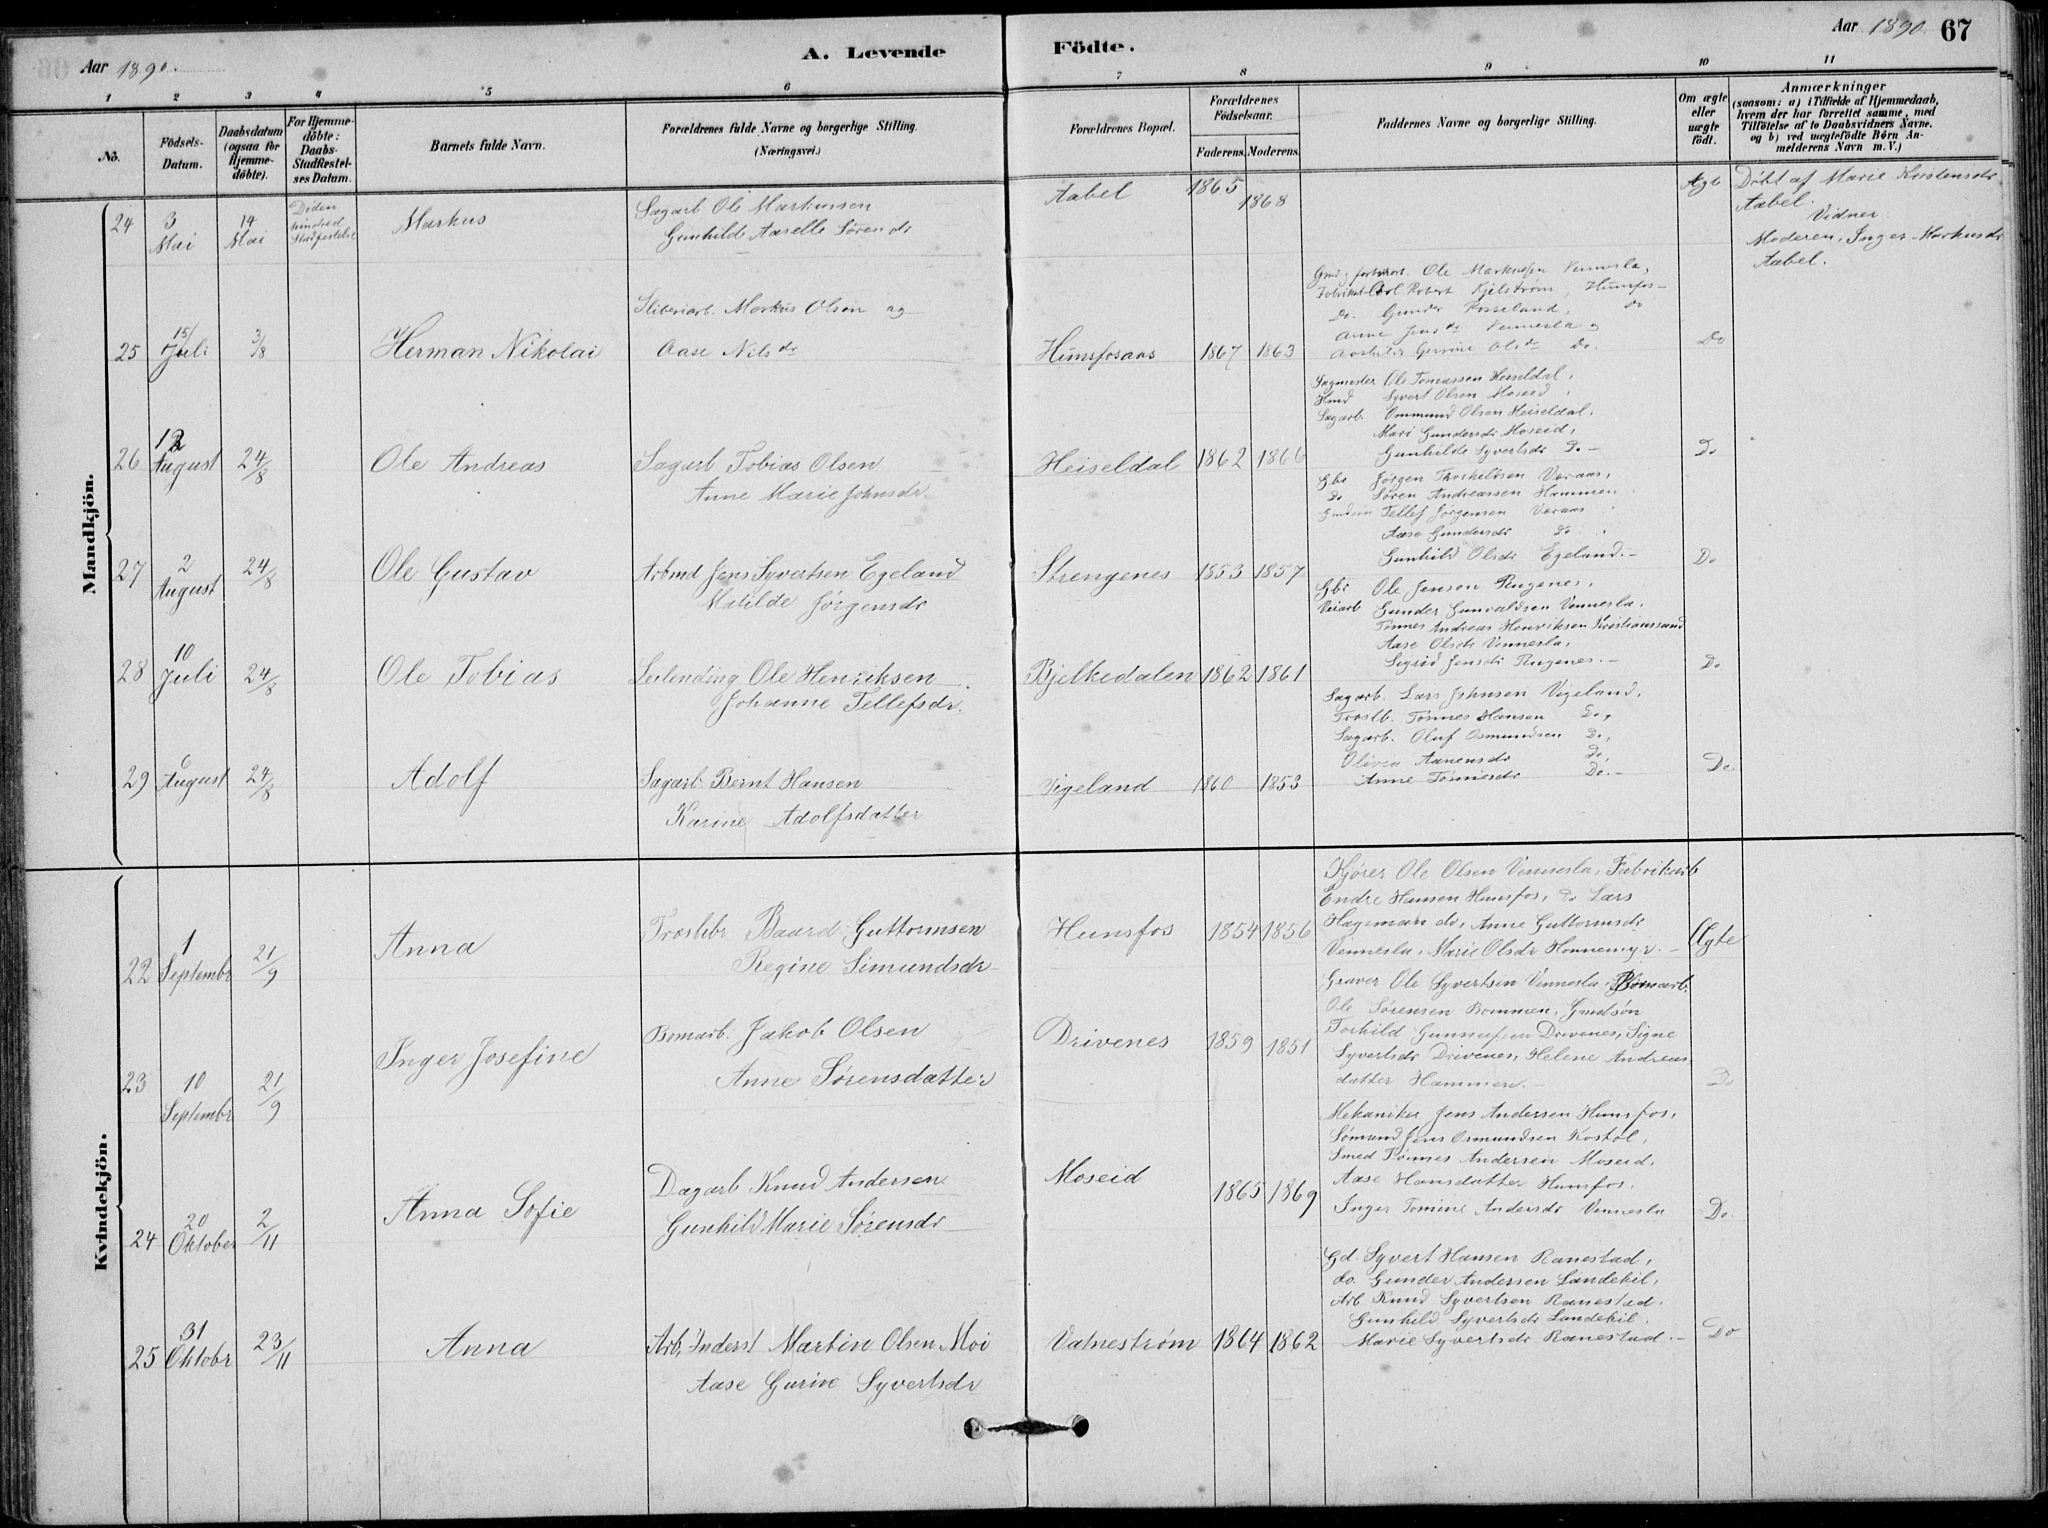 Aar 1890.
A. Levende
Födte.
Aar 1890. 67
1 2 3 4 5 6 7 8 9 10 11
No.
Födsels-
Datum.
Daabsdatum
(ogsaa for
Hjemme-
döbte).
For Hjemme-
döbte:
Daabs-
Stadfæstel-
ses Datum.
Barnets fulde Navn.
Forældrenes fulde Navne og borgerlige Stilling.
(Næringsvei.)
Forældrenes Bopæl.
Forældrenes
Födselsaar.
Faderens. Moderens.
Faddernes Navne og borgerlige Stilling.
Om ægte
eller
uægte
födt.
Anmærkninger
(saasom: a) i Tilfælde af Hjemmedaab,
hvem der har forrettet samme, med
Tilföielse af to Daabsvidners Navne.
og b) ved uægtefödte Børn An-
melderens Navn m. V.)
Mandkjön.
24
3
Mai
14
Mai
Døden
Stadfæstelse
Markus
Sagarb. Ole Markussen
Gunhilde Aarelle Sørensdr
Aabel
1865
1868
Agte
Døbt af Marie Kristensdr
Aabel.
Vidner
Moderen, Inger Markusdr
Aabel.
25
15/
Juli
3/8
Herman Nikolai
Sliberiarb. Markus Olsen og
Aase Nilsdr
Hunsfosaas
1867 1863
Ole Markussen Vennesla,
Robert Kjelstrøm, Hunsfos-
Do. Gunder Rosseland, do
Anne Jensdr Vennesla og
Olsdr Do.
Do
26
12
August
24/8
Ole Andreas
Sagarb Tobias Olsen
Anne Marie Johnsdr.
Heiseldal
1862 1866
Sagmester Ole Tomassen Heiseldal,
Syvert Olsen Moseid,
Sagarb. Ommund Olsen Heiseldal,
Mari Gundersdr Moseid,
Gunhilde Syvertsdr Do -
Do
27
2
August
24/8
Ole Gustav
Arbmd Jens Syvertsen Egeland
Matilde Jørgensdr
Strengenes
1853 1857
Gbr Jørgen Thorkildsen Væraas,
Do Søren Andreassen Hammen
Tellef Jørgensen Væraas
Aase Gundersdr Do
Gunhild Olsdr Egeland. -
Do
28
10
Juli
24/8
Ole Tobias
Leilending Ole Henriksen
Johanne Tellefsdr.
Bjelkedalen
1862 1861
Gbr Ole Jenson Rugenes,
Veiarb Gunder Gunvaldsen Vennesla,
Tønnes Andreas Henriksen Kristianssand
Aase Olsdr Vennesla,
Sigrid Jensdr Rugenes. -
Do
29
6
August
24/8
Adolf
Sagarb. Bernt Hansen
Karine Adolfsdatter
Vigeland
1860 1853
Sagarb. Lars Johnsen Vigeland,
Troslb. Tønnes Hansen Do,
Sagarb. Oluf Osmundsen Do,
Olivia Aanensdr Do,
Anne Tønnesdr Do. -
Do.
Kvindekjön.
22
1
Septembr
21/9
Anna
Troslibr Baard Guttormsen
Regine Simundsdr
Hunsfos
1854 1856
Kjører Ole Olsen Vennesla, Fabrikarb
Endre Hansen Hunsfos, do Lars
Hageman do, Anne Guttormsdr
Vennesla, Marie Olsdr Honnemyr. -
Ægte
23
10
Septembr
21/9
Inger Josefine
Bomarb. Jakob Olsen
Anne Sørensdatter
Drivenes
1859 1851
Graver Ole Syvertsen Vennesla, Bomarb.
Ole Sørensen Bommen, Gmdsøn
Torkild Gunnufsen Drivenes, Signe
Syvertsdr Drivenes, Helene Andreas
datter Hammen. -
Do
24
20
Oktober
2/11
Anna Sofie
Dagarb Knud Andersen
Gunhild Marie Sørensdr
Moseid
1865 1869
Mekaniker Jens Andersen Hunsfos,
Sømand Jens Osmundsen Kostøl,
Smed Tønnes Andersen Moseid,
Aase Hansdatter Hunsfos,
Inger Tomine Andersdr Vennesla
Do.
25
31
Oktobr
23/11
Anna
Arb, Inderst Martin Olsen Moi
Aase Gurine Syvertsdr
Vatnestrøm
1864 1862
Gd. Syvert Hansen Ranestad,
do. Gunder Andersen Landekil,
Arb Knud Syvertsen Ranestad.
Gunhild Syvertsdr Landekil.
Marie Syvertsdr Ranestad. -
Do